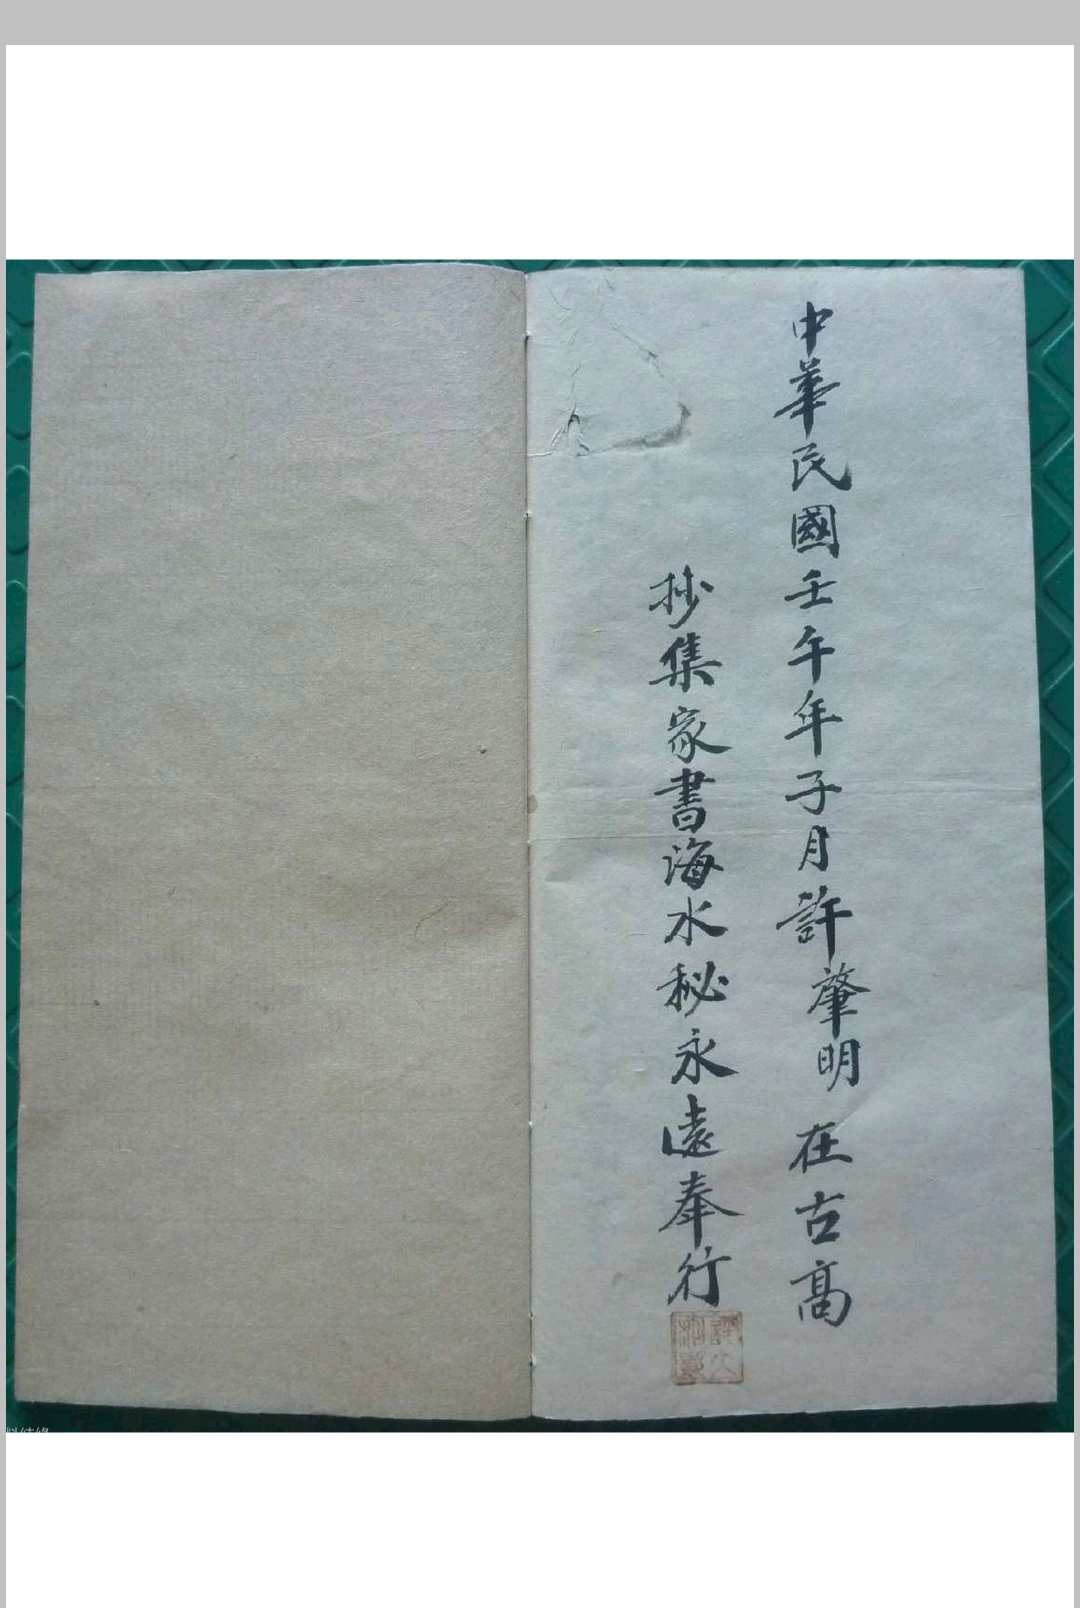 中華民國壬午年子月許肇明在古高
抄集家書海水秘永遠奉行